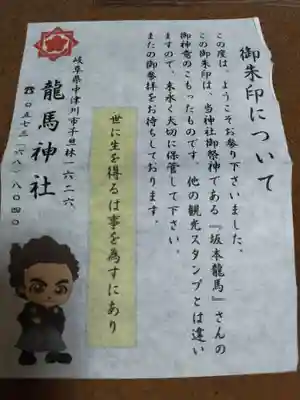 御朱印について
この度は、ようこそお参り下さいました。
この御朱印は、当神社御祭神である『坂本龍馬』さんの
御神霊のこもったものです。他の観光スタンプとは違い
ますので、末永く大切に保管して下さい。
またの御参拝をお待ちしております。
世に生を得るは事を為すにあり
岐阜県中津川市千旦林一六二六、
龍馬神社
☎〇五七三(六八)八〇四〇